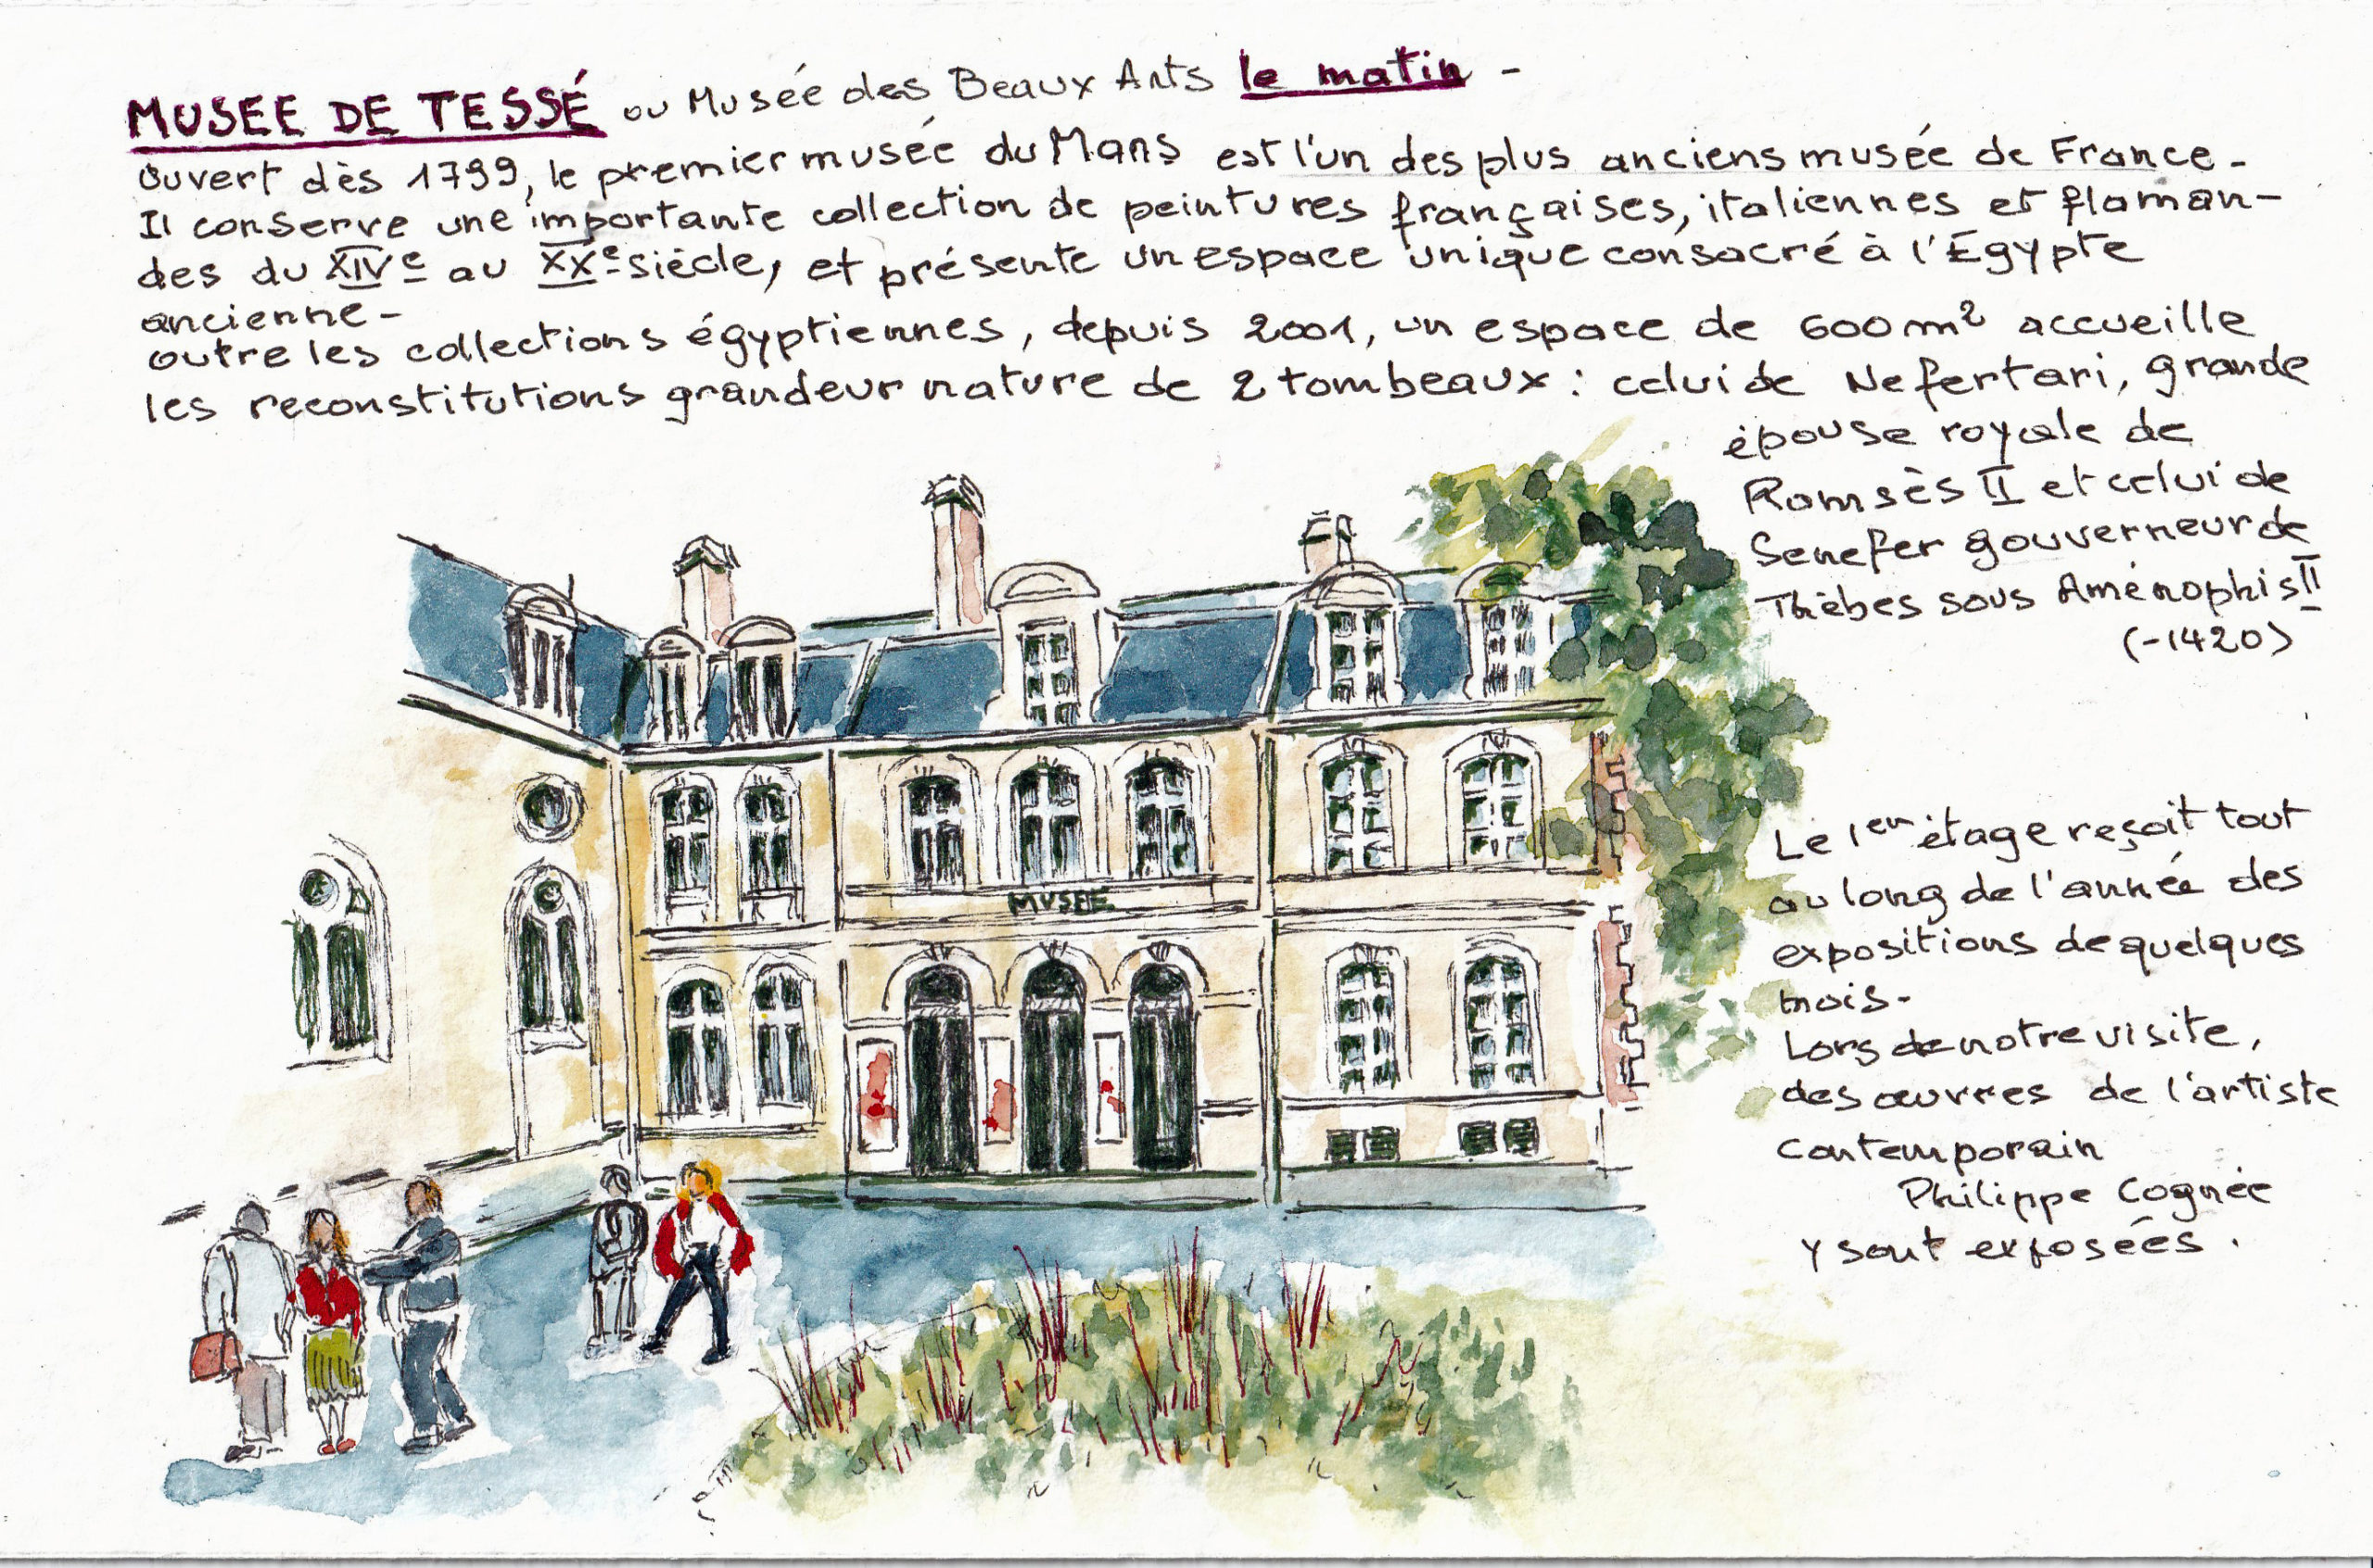 MUSEE DE TESSÉ ou Musée des Beaux Arts le matin -
Ouvert dès 1799, le premier musée du Mans est l'un des plus anciens musée de France -
Il conserve une importante collection de peintures françaises, italiennes et flaman-
des du XIVe au XXe siècle, et présente un espace unique consacré à l'Égypte
ancienne -
outre les collections égyptiennes, depuis 2001, un espace de 600 m² accueille
les reconstitutions grandeur nature de 2 tombeaux : celui de Nefertari, grande
épouse royale de
Ramsès II et celui de
Senefer gouverneur de
Thèbes sous Aménophis II
(-1420)
MUSEE
Le 1er étage reçoit tout
au long de l'année des
expositions de quelques
mois -
Lors de notre visite,
des œuvres de l'artiste
contemporain
Philippe Cognée
y sont exposées .